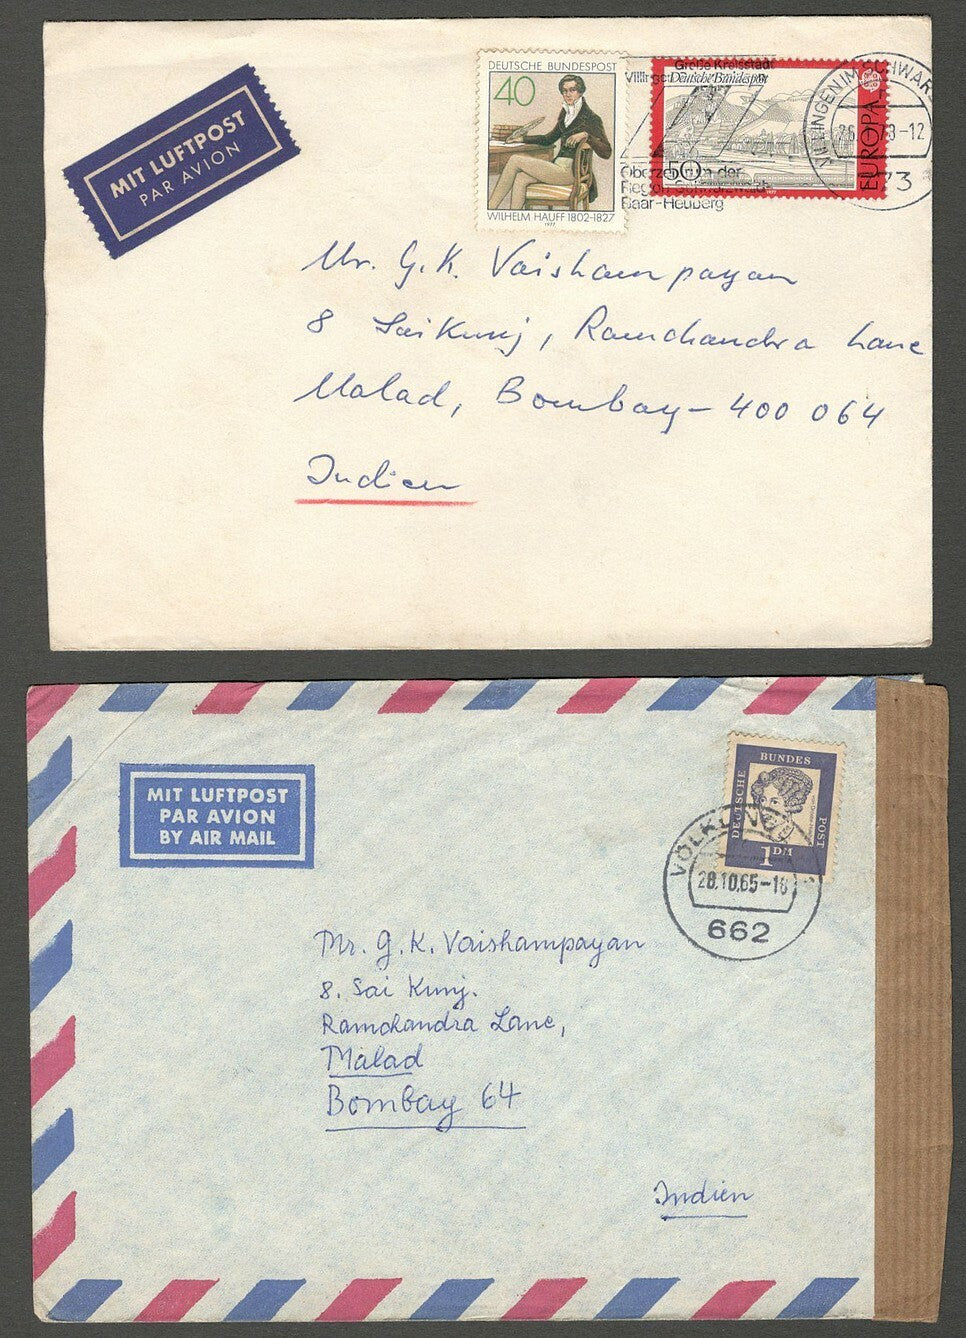 MIT LUFTPOST
PAR AVION
DEUTSCHE BUNDESPOST
40
WILHELM HAUFF 1802-1827
1977
Große Kreisstadt
Deutsche Bundespost
50
EUROPA
Oberzentrum der
Region Schwarzwald-
Baar-Heuberg
VILLINGEN IM SCHWARZ
-12
73
Mr. G.K. Vaishampayan
8 Saikunj, Ramchandra Lane
Malad, Bombay-400 064
Indien
MIT LUFTPOST
PAR AVION
BY AIR MAIL
DEUTSCHE
BUNDES
POST
1 DM
VÖLKLINGEN
28.10.65-16
662
Mr. G.K. Vaishampayan
8. Sai Kunj.
Ramchandra Lane,
Malad
Bombay 64
Indien